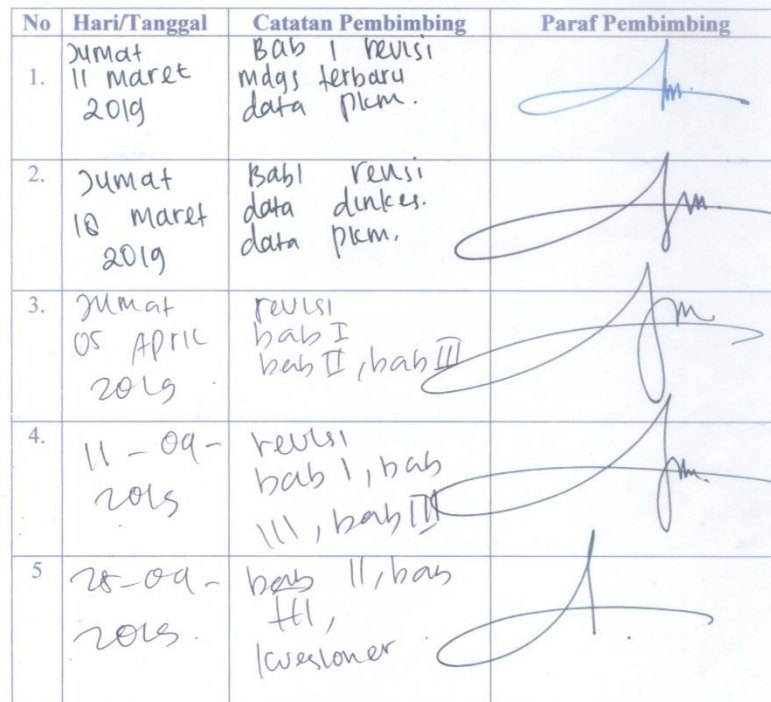 No Hari/Tanggal Catatan Pembimbing Paraf Pembimbing
1. Jumat
11 Maret
2019
Bab I revisi
mdgs terbaru
data pkm.
2. Jumat
18 Maret
2019
Bab I revisi
data dinkes.
data pkm.
3. Jumat
05 April
2019
revisi
bab I
bab II, bab III
4. 11-09-
2019
revisi
bab I, bab
III, bab III
5 28-09-
2019.
bab II, bab
III,
kuesioner